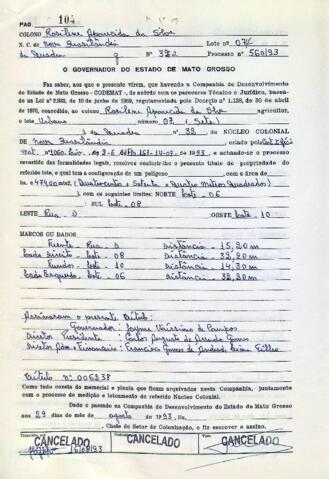 PAG. 104
COLONO Rosilene Aparecida da Silva
N. C. de Nova Brasilândia Lote nº 07
da Quadra Nº 382 Processo nº 560/93
O GOVERNADOR DO ESTADO DE MATO GROSSO
Faz saber, aos que o presente virem, que havendo a Companhia de Desenvolvimento
do Estado de Mato Grosso - CODEMAT - de acordo com os pareceres Técnico e Jurídico, basea-
dos na Lei nº de 10 de junho de 1969, regulamentada pelo Decreto nº 1.138, de 30 de abril
de 1970, havendo ao colono Rosilene Aparecida da Silva agricultor,
o lote Urbano número 07 (Sete)
da Quadra nº 32, do NÚCLEO COLONIAL
DE Nova Brasilândia criado pelo
14-07- de 1993 e achando-se o processo
revestido das formalidades legais, resolveu conferir-lhe o presente título de propriedade do
referido lote, o qual tem a configuração de um polígono com a área de
474,00 mts² (Quatrocentos e Setenta e Quatro Metros Quadrados)
com os seguintes limites: NORTE Lote - 06
SUL Lote - 08
LESTE Rua - D OESTE Lote - 10
MARCOS OU DADOS
Frente Rua D Distância - 15,20 m
Lado Direito - Lote - 08 Distância - 32,20 m
Fundos - Lote - 10 Distância - 14,30 m
Lado Esquerdo - Lote - 06 Distância - 32,20 m
Assinaram o presente Título:
Governador: Jayme Veríssimo de Campos
Diretor Presidente: Carlos Augusto de Arruda Gomes
Diretor Adm. e Financeiro: Francisco Gomes de Andrade Lima Filho
Título nº 006238
Como tudo consta do memorial e planta que foram arquivados nesta Companhia, juntamente
com o processo de medição e loteamento do referido Núcleo Colonial.
Dado e passado na Companhia de Desenvolvimento do Estado de Mato Grosso
aos 29 dias do mês de agosto de 1993. Eu,
, Chefe do Setor de Colonização, o fiz escrever e assino.
CANCELADO CANCELADO CANCELADO
16/08/93